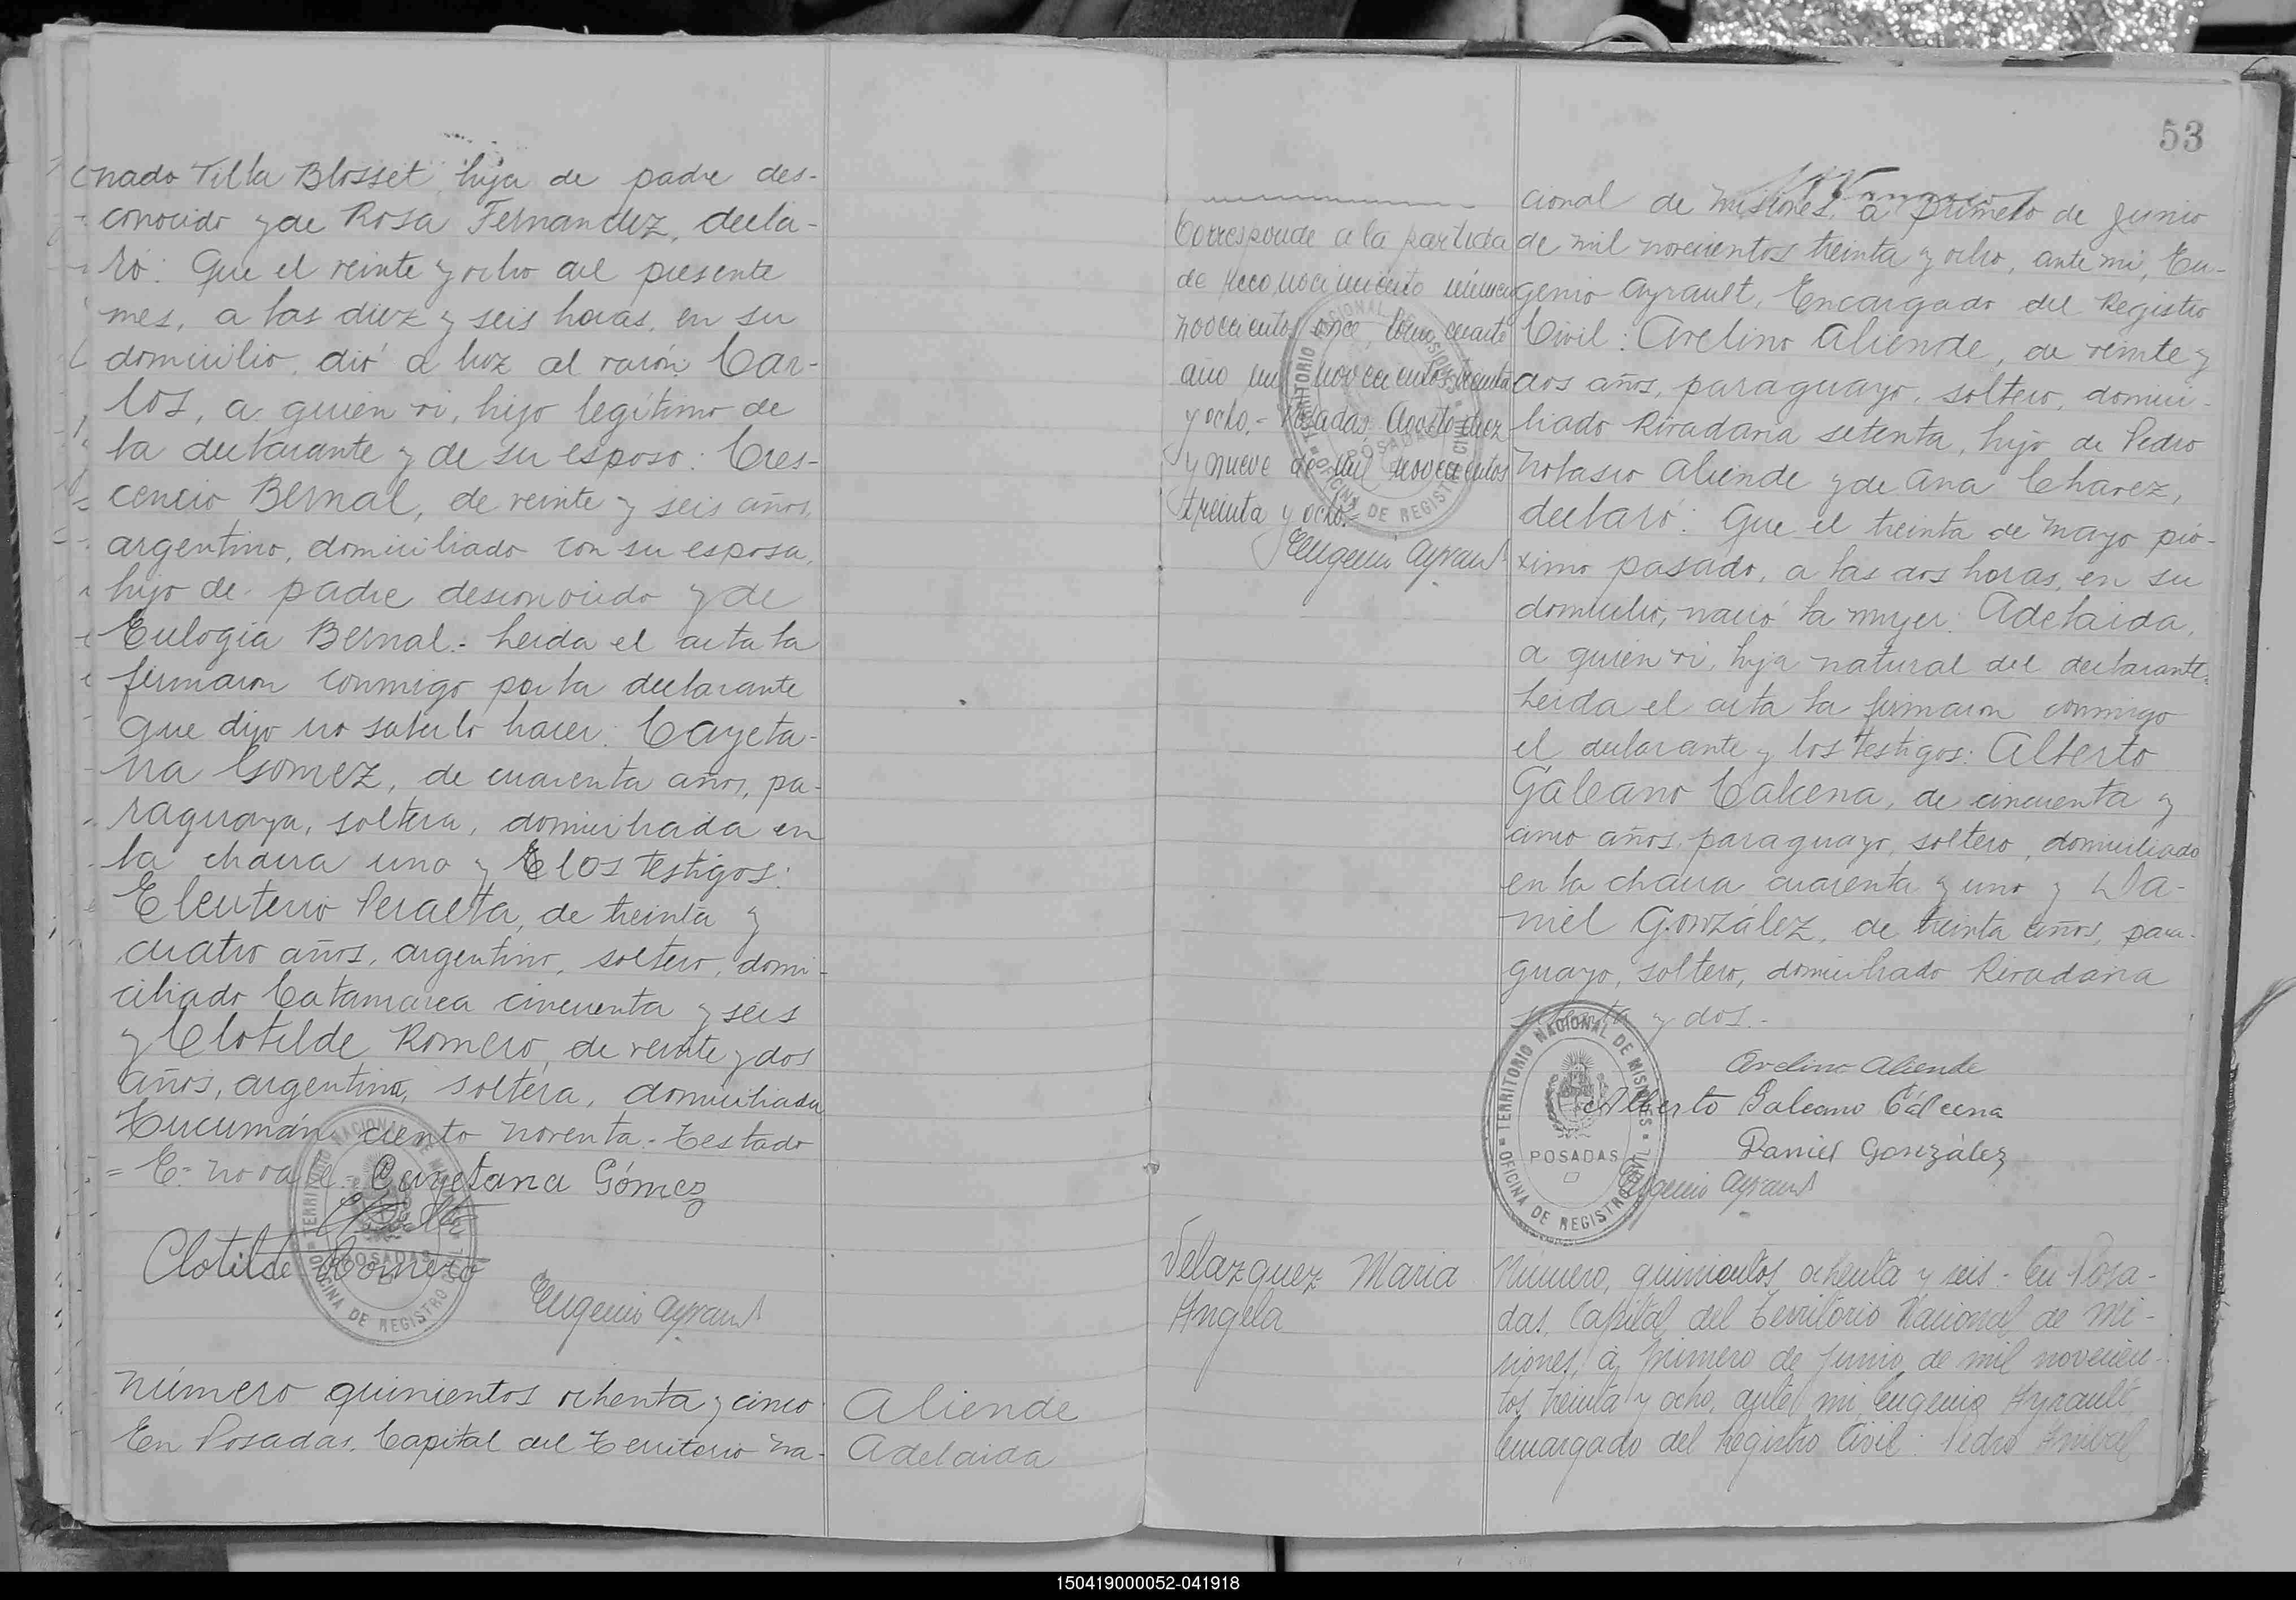 nado Villa Blosset, hija de padre des-
conocido y de Rosa Fernandez, decla-
ró: Que el veinte y ocho del presente
mes, a las diez y seis horas, en su
domicilio, dió a luz al varón: Car-
los, a quien vi, hijo legítimo de
la declarante y de su esposo: Cres-
cencio Bernal, de veinte y seis años,
argentino, domiciliado con su esposa,
hijo de padre desconocido y de
Eulogia Bernal.- Leida el acta la
firmaron conmigo por la declarante
que dijo no saberlo hacer: Cayeta-
na Gomez, de cuarenta años, pa-
raguaya, soltera, domiciliada en
la chacra uno y E los testigos:
Eleuterio Peralta, de treinta y
cuatro años, argentino, soltero, domi-
ciliado Catamarca cincuenta y seis
y Clotilde Romero, de veinte y dos
años, argentina, soltera, domiciliada
Tucumán ciento noventa.- Testado
= E = no vale.- Cayetana Gómez
Clotilde Romero
Eugenio Ayrault
TERRITORIO NACIONAL DE MISIONES
POSADAS
OFICINA DE REGISTRO CIVIL
Número quinientos ochenta y cinco
En Posadas, Capital del Territorio Na-
Aliende
Adelaida
53
Corresponde a la partida
de reconocimiento número
novecientos once, tomo cuarto
año mil novecientos treinta
y ocho.- Posadas, Agosto diez
y nueve de mil novecientos
treinta y ocho.-
Eugenio Ayrault
TERRITORIO NACIONAL DE MISIONES
POSADAS
OFICINA DE REGISTRO CIVIL
cional de Misiones, a primero de Junio
de mil novecientos treinta y ocho, ante mi, Eu-
genio Ayrault, Encargado del Registro
Civil: Avelino Aliende, de veinte y
dos años, paraguayo, soltero, domici-
liado Rivadavia setenta, hijo de Pedro
Nolasco Aliende y de Ana Chavez,
declaró: Que el treinta de Mayo pró-
ximo pasado, a las dos horas, en su
domicilio, nació la mujer: Adelaida,
a quien vi, hija natural del declarante.
Leida el acta la firmaron conmigo
el declarante y los testigos: Alberto
Galeano Calcena, de cincuenta y
cinco años, paraguayo, soltero, domiciliado
en la chacra cuarenta y uno y Da-
niel González, de treinta años, para-
guayo, soltero, domiciliado Rivadavia
setenta y dos.-
Avelino Aliende
Alberto Galeano Cálcena
Daniel González
Eugenio Ayrault
TERRITORIO NACIONAL DE MISIONES
POSADAS
OFICINA DE REGISTRO CIVIL
Velazquez Maria
Angela
Número, quinientos ochenta y seis.- En Posa-
das, Capital del Territorio Nacional de Mi-
siones, á primero de Junio de mil novecien-
tos treinta y ocho, ante mi Eugenio Ayrault,
Encargado del Registro Civil: Pedro Anibal
150419000052-041918